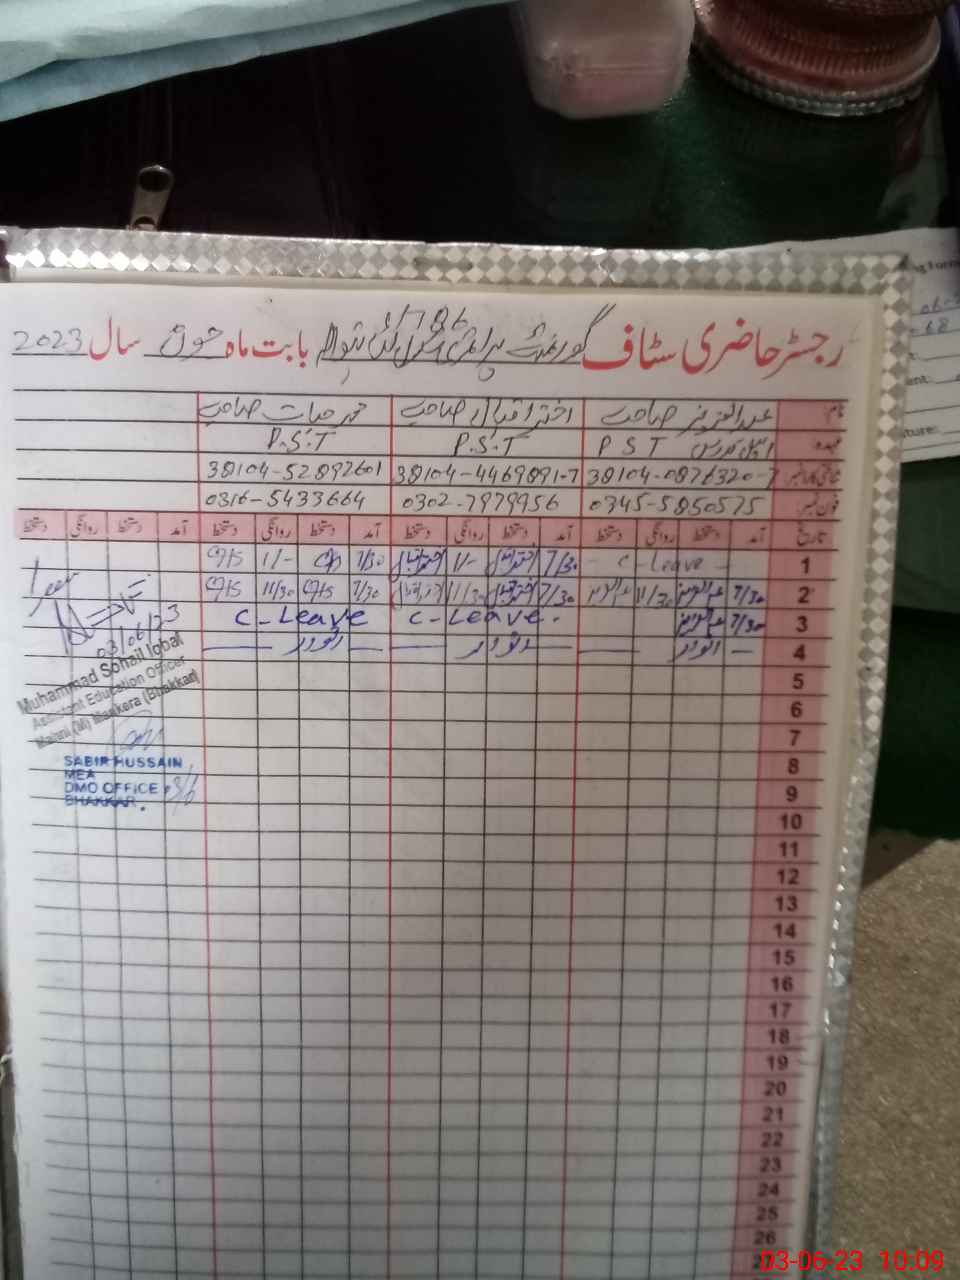 1/786
رجسٹر حاضری سٹاف گورنمنٹ پرائمری سکول بابت ماہ جون سال 2023
نام عبدالعزیز صاحب اختر اقبال صاحب محمد حیات صاحب
عہدہ PST P.S.T P.S.T
شناختی کارڈ نمبر 38104-0876320-7 38104-4469891-7 38104-52892601
فون نمبر 0345-5850575 0302-7979956 0316-5433664
تاریخ آمد دستخط روانگی دستخط آمد دستخط روانگی دستخط آمد دستخط روانگی دستخط آمد دستخط روانگی دستخط
1 - C - Leave - 7/30 اختر اقبال 11/- اختر اقبال 7/30 11/-
2 7/30 عبدالعزیز 11/30 عبدالعزیز 7/30 اختر اقبال 11/30 اختر اقبال 7/30 11/30
3 7/30 عبدالعزیز C - Leave. C - Leave
4 — اتوار — — اتوار — — اتوار —
5
6
7
8
9
10
11
12
13
14
15
16
17
18
19
20
21
22
23
24
25
26
27
03/06/23
Muhammad Sohail Iqbal
Assistant Education Officer
(M) Mankera (Bhakkar)
SABIR HUSSAIN
MEA
DMO OFFICE 03/6
BHAKKAR.
03-06-23 10:09